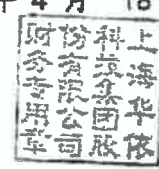 年 4 月
上海华依
科技集团股
份有限公司
财务专用章